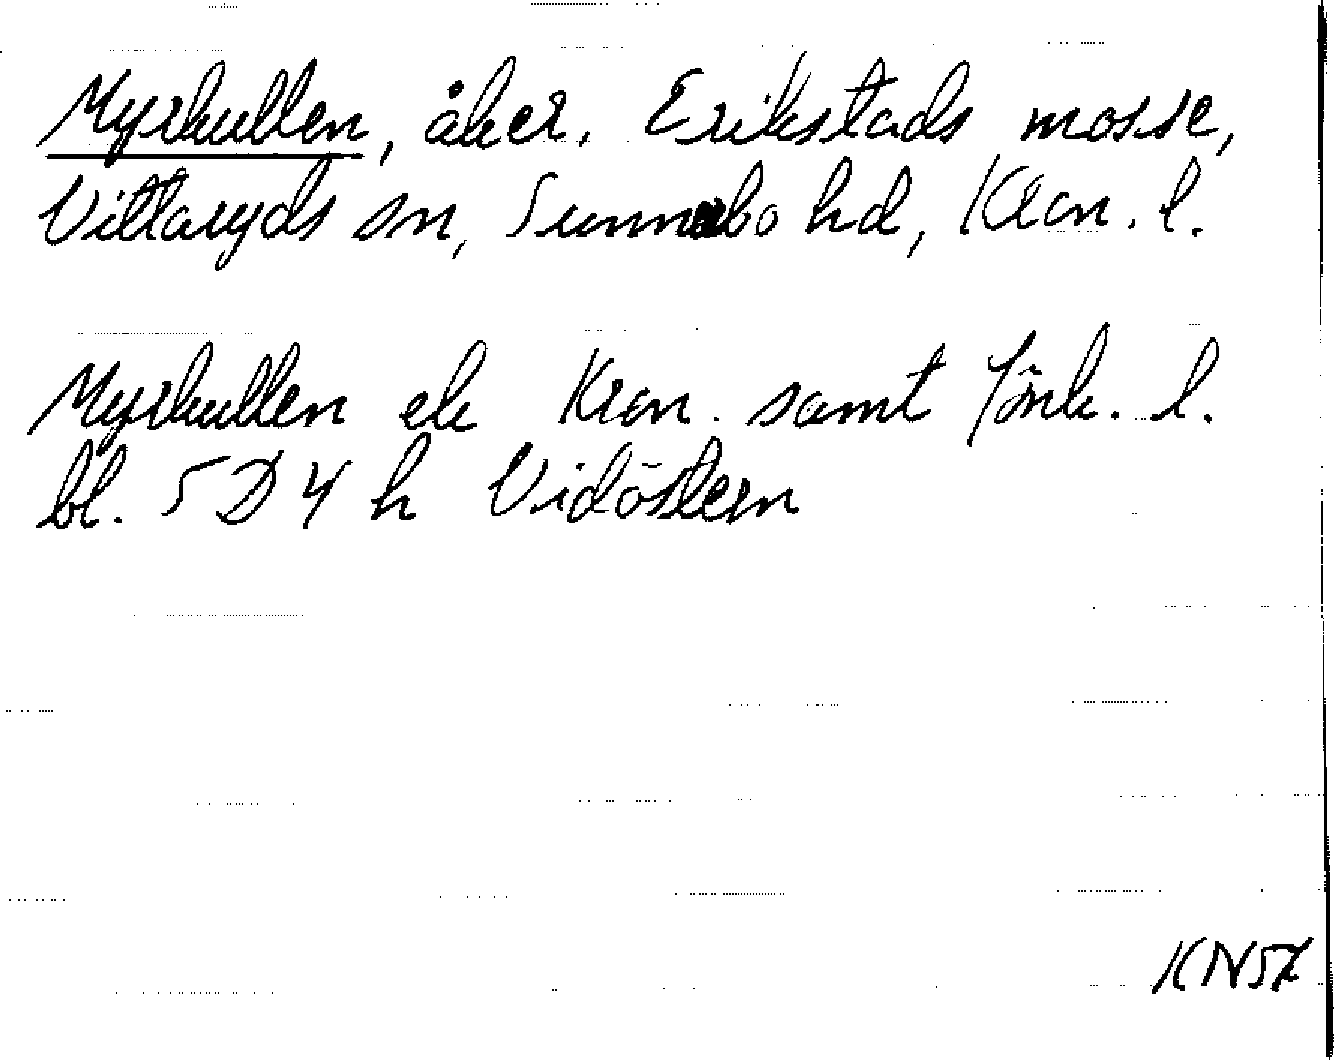 Myrkullen, åker. Erikstads mosse,
Vittaryds sn, Sunnerbo hd, Kron. l.
Myrkullen ek Kron. samt Jönk. l.
bl. 5D 4 h Vidöstern
KN57